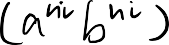 (a^{ni} b^{ni})